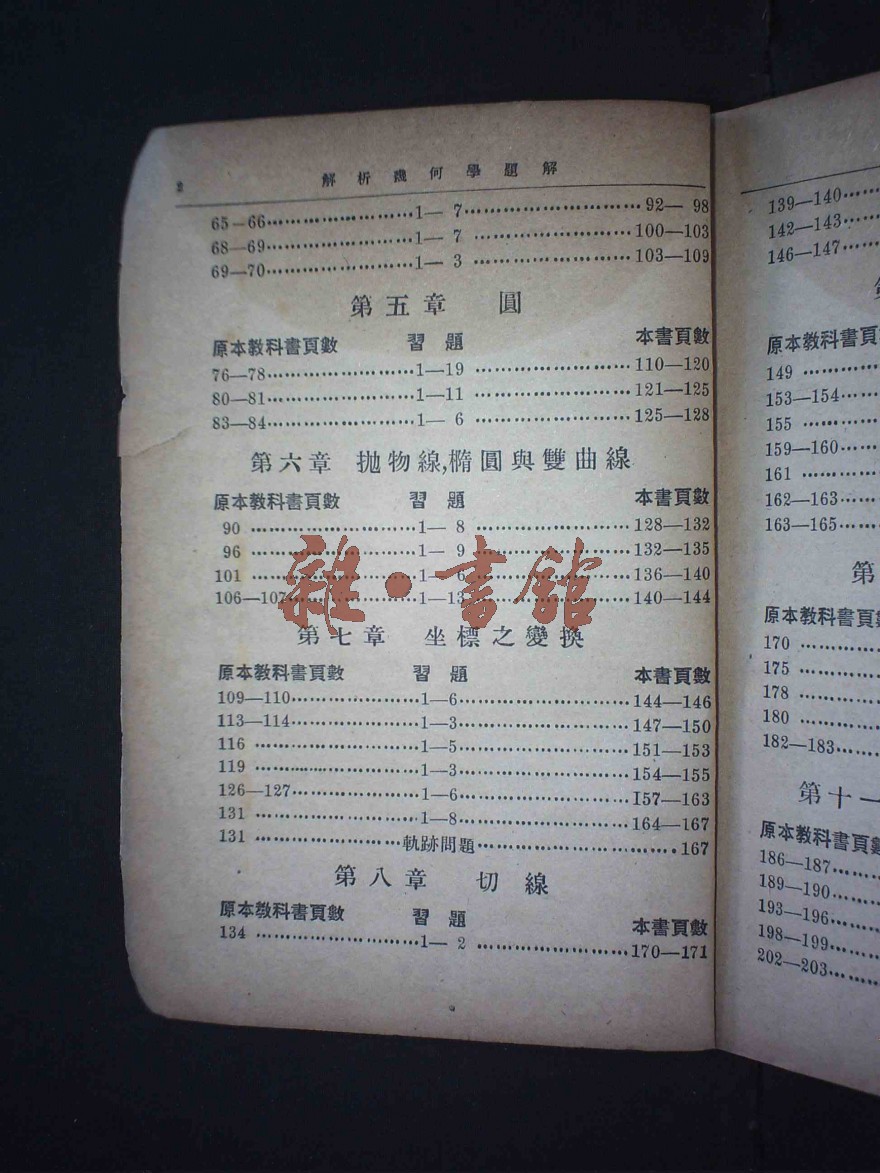 2 解析幾何學題解
65—66……………………1— 7…………………………92— 98
68—69……………………1— 7………………………100—103
69—70……………………1— 3………………………103—109
第五章 圓
原本教科書頁數 習題 本書頁數
76—78……………………1—19………………………110—120
80—81……………………1—11………………………121—125
83—84……………………1— 6………………………125—128
第六章 拋物線,橢圓與雙曲線
原本教科書頁數 習題 本書頁數
90………………………1— 8………………………128—132
96………………………1— 9………………………132—135
101………………………1— 6………………………136—140
106—107…………………1—13………………………140—144
雜·書館
第七章 坐標之變換
原本教科書頁數 習題 本書頁數
109—110…………………1—6…………………………144—146
113—114…………………1—3…………………………147—150
116………………………1—5…………………………151—153
119………………………1—3…………………………154—155
126—127…………………1—6…………………………157—163
131………………………1—8…………………………164—167
131……………………軌跡問題……………………………167
第八章 切線
原本教科書頁數 習題 本書頁數
134………………………1— 2………………………170—171
139—140……
142—143……
146—147……
原本教科書頁
149……
153—154……
155……
159—160……
161……
162—163……
163—165……
第
原本教科書頁數
170……
175……
178……
180……
182—183……
第十一
原本教科書頁數
186—187……
189—190……
193—196……
198—199……
202—203……